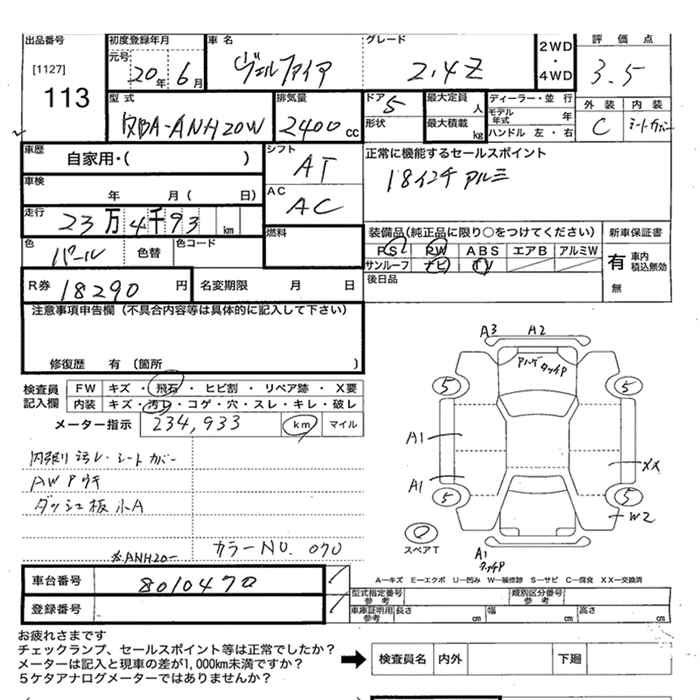 出品番号 初度登録年月 車名 グレード 評価点
[1127] 元号 20年 6月 ヴェルファイア 2.4Z 2WD・4WD 3.5
113
型式 排気量 ドア 5 最大定員 人 ディーラー・並行 外装 内装
DBA-ANH20W 2400cc 形状 最大積載 kg モデル年式 年 C シートカバー
ハンドル 左・右
車歴 自家用・( ) シフト AT 正常に機能するセールスポイント
車検 年 月(日) AC AC 18インチアルミ
走行 23万4千93 km 燃料 装備品(純正品に限り○をつけてください) 新車保証書
色 パール 色替 色コード PS PW ABS エアB アルミW 有 車内積込無効
サンルーフ ナビ TV 無
R券 18290円 名変期限 月 日 後日品
注意事項申告欄(不具合内容等は具体的に記入して下さい)
修復歴 有(箇所 )
検査員 FW キズ・飛石・ヒビ割・リペア跡・X要
記入欄 内装 キズ・汚レ・コゲ・穴・スレ・キレ・破レ
メーター指示 234,933 km マイル
内張り汚レ・シートカバー
AWアウキ
ダッシュ板小A
※ANH20- カラーNO. 070
A3 A2
5 5
A1 XX
A1
5 5
W2
スペアT A1 タッチP
A−キズ E−エクボ U−凹み W−補修跡 S−サビ C−腐食 XX−交換済
車台番号 8010470 型式指定番号 参考 類別区分番号 参考
登録番号 車庫証明用 参考 長さ cm 幅 cm 高さ cm
お疲れさまです
チェックランプ、セールスポイント等は正常でしたか?
メーターは記入と現車の差が1,000km未満ですか? 検査員名 内外 下廻
5ケタアナログメーターではありませんか?